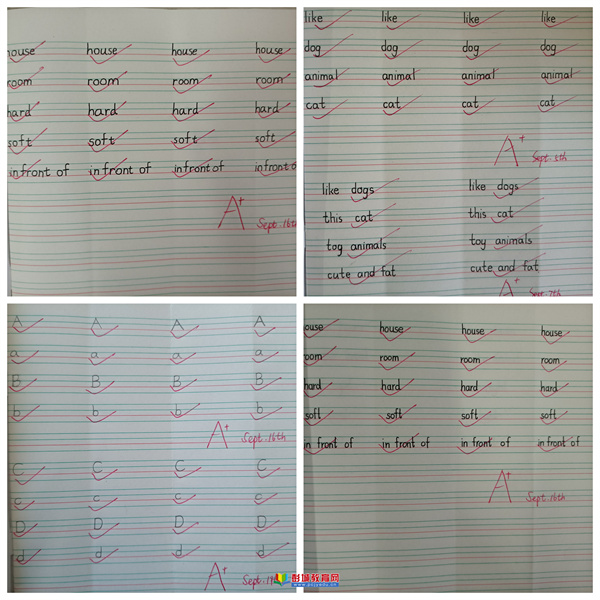 house house house house
room room room room
hard hard hard hard
soft soft soft soft
in front of in front of in front of in front of
A+ Sept. 16th
like like like like
dog dog dog dog
animal animal animal animal
cat cat cat cat
A+ Sept. 5th
like dogs like dogs
this cat this cat
toy animals toy animals
cute and fat cute and fat
A+ Sept. 7th
A A A A
a a a a
B B B B
b b b b
A+ Sept. 16th
C C C C
c c c c
D D D D
d d d d
A+ Sept.
ouse house house house
room room room room
hard hard hard hard
soft soft soft soft
in front of in front of in front of in front of
A+ Sept. 16th
彭城教育网